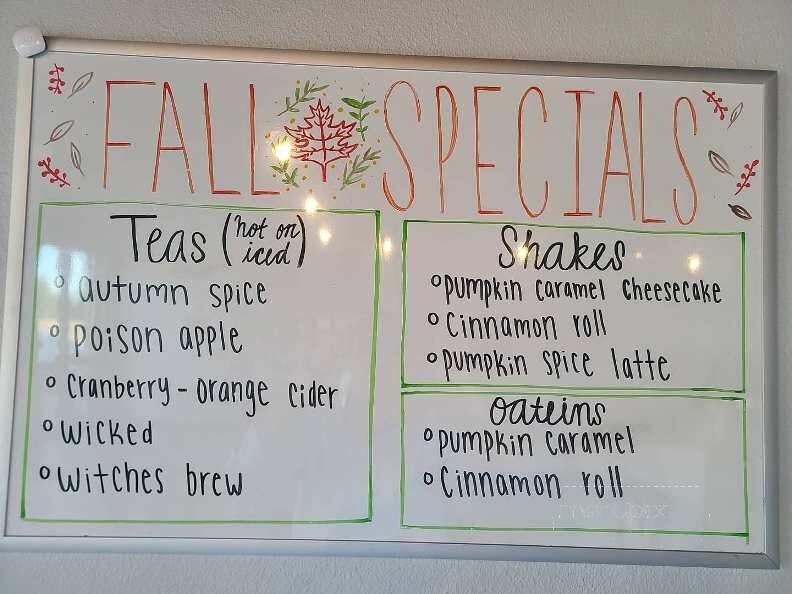 FALL SPECIALS
Teas (hot or iced)
autumn spice
poison apple
cranberry - orange cider
wicked
witches brew
Shakes
pumpkin caramel cheesecake
Cinnamon roll
pumpkin spice latte
oateins
pumpkin caramel
Cinnamon roll